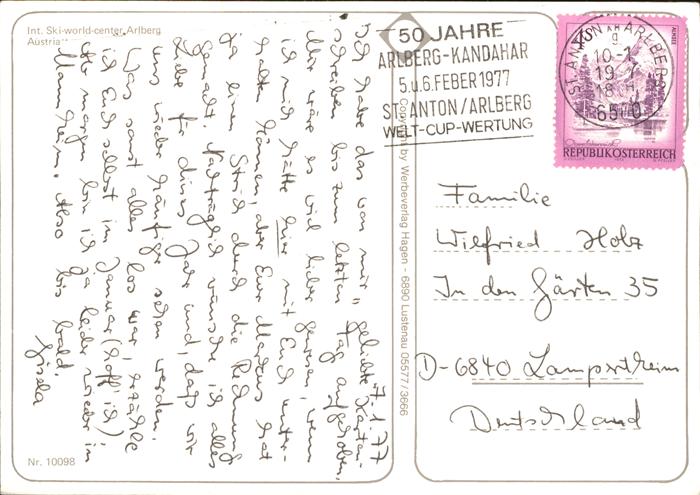 Int. Ski-world-center Arlberg
Austria
50 JAHRE
ARLBERG-KANDAHAR
5.u.6.FEBER 1977
ST. ANTON/ARLBERG
WELT-CUP-WERTUNG
ST. ANTON AM ARLBERG
10-1
19.1
18
6580
ALMSEE
REPUBLIK ÖSTERREICH
7.1.77
Ich habe das von mir "geliebte" Karten-
schreiben bis zum letzten Tag aufgehoben.
Mir wäre es viel lieber gewesen, wenn
ich mich hätte hier mit Euch unter-
halten können, aber Euer Markus hat
ja einen Strich durch die Rechnung
gemacht. Nachträglich wünsche ich alles
Liebe für dieses Jahr und, daß wir
uns wieder häufiger sehen werden.
Was sonst alles los war, erzähle
ich Euch selbst im Januar (hoff' ich)
Ab morgen bin ich ja leider wieder in
Mannheim. Also bis bald.
Gisela
Copyright by Werbeverlag Hagen - 6890 Lustenau 05577/3666
Familie
Wilfried Holz
In den Gärten 35
D-6840 Lampertheim
Deutschland
Nr. 10098